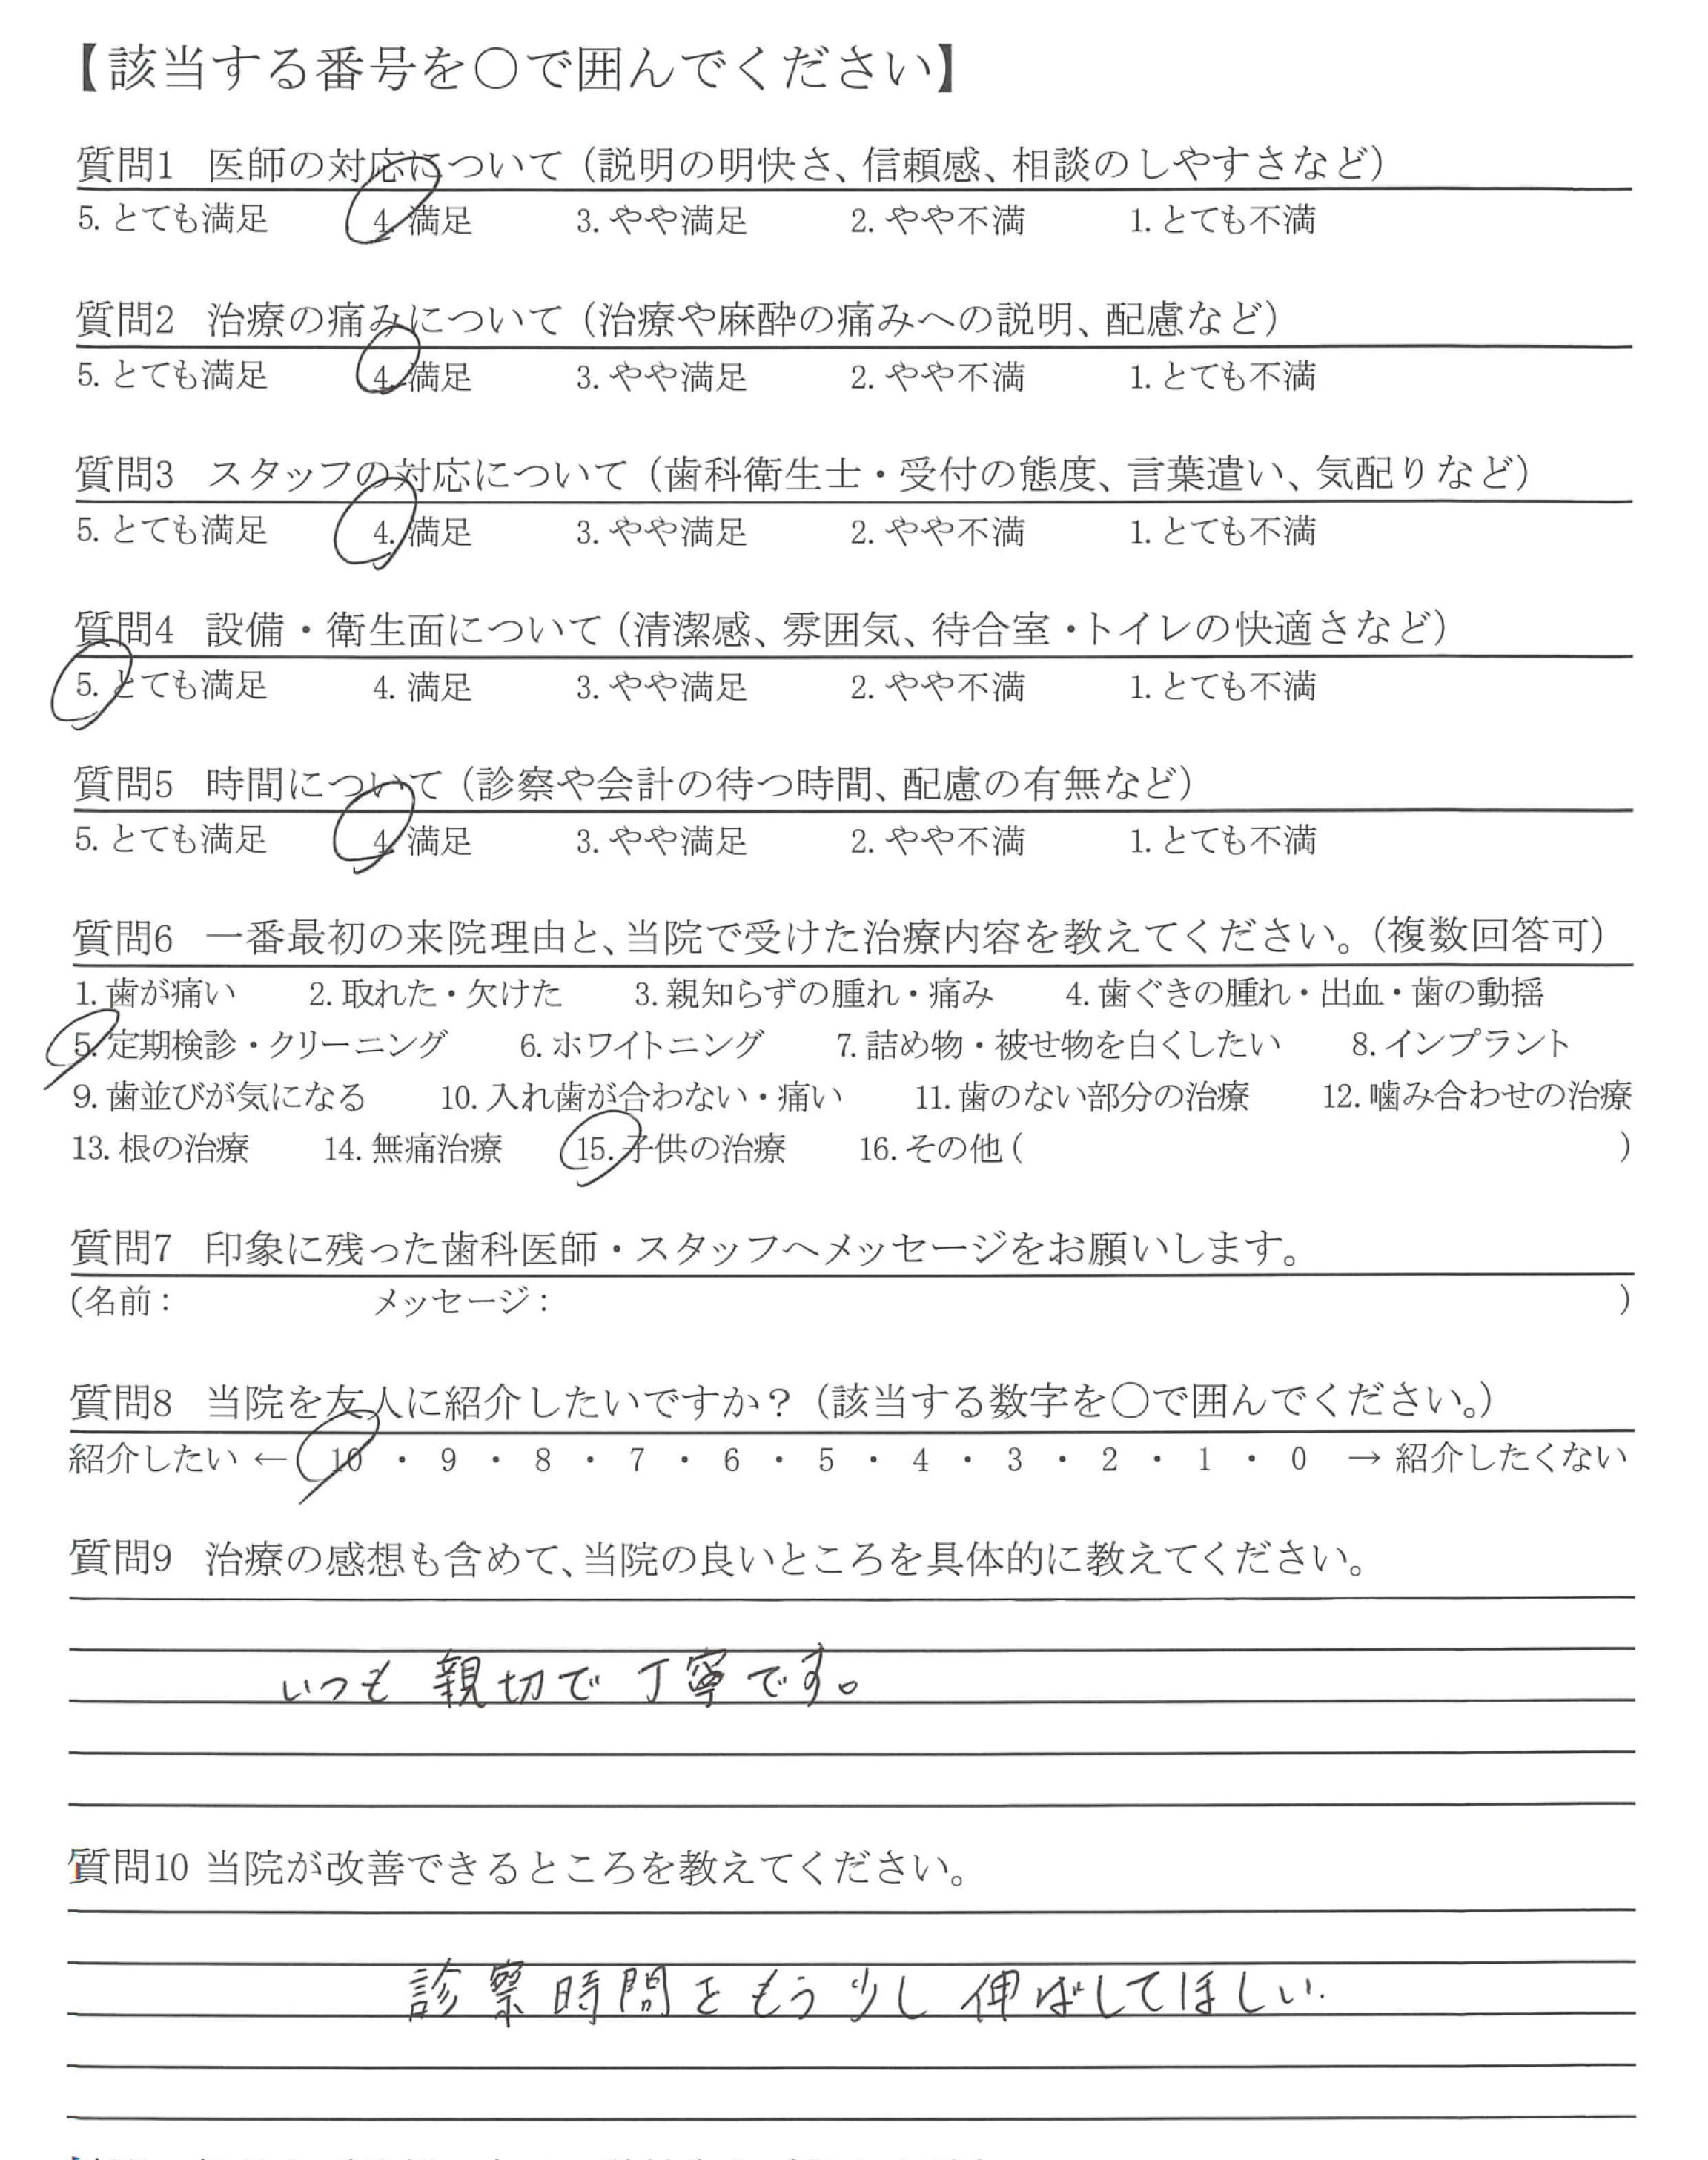 【該当する番号を〇で囲んでください】
質問1 医師の対応について（説明の明快さ、信頼感、相談のしやすさなど）
5. とても満足 4. 満足 3. やや満足 2. やや不満 1. とても不満
質問2 治療の痛みについて（治療や麻酔の痛みへの説明、配慮など）
5. とても満足 4. 満足 3. やや満足 2. やや不満 1. とても不満
質問3 スタッフの対応について（歯科衛生士・受付の態度、言葉遣い、気配りなど）
5. とても満足 4. 満足 3. やや満足 2. やや不満 1. とても不満
質問4 設備・衛生面について（清潔感、雰囲気、待合室・トイレの快適さなど）
5. とても満足 4. 満足 3. やや満足 2. やや不満 1. とても不満
質問5 時間について（診察や会計の待つ時間、配慮の有無など）
5. とても満足 4. 満足 3. やや満足 2. やや不満 1. とても不満
質問6 一番最初の来院理由と、当院で受けた治療内容を教えてください。（複数回答可）
1. 歯が痛い 2. 取れた・欠けた 3. 親知らずの腫れ・痛み 4. 歯ぐきの腫れ・出血・歯の動揺
5. 定期検診・クリーニング 6. ホワイトニング 7. 詰め物・被せ物を白くしたい 8. インプラント
9. 歯並びが気になる 10. 入れ歯が合わない・痛い 11. 歯のない部分の治療 12. 噛み合わせの治療
13. 根の治療 14. 無痛治療 15. 子供の治療 16. その他（ ）
質問7 印象に残った歯科医師・スタッフへメッセージをお願いします。
（名前： メッセージ： ）
質問8 当院を友人に紹介したいですか？（該当する数字を〇で囲んでください。）
紹介したい ← 10 ・ 9 ・ 8 ・ 7 ・ 6 ・ 5 ・ 4 ・ 3 ・ 2 ・ 1 ・ 0 → 紹介したくない
質問9 治療の感想も含めて、当院の良いところを具体的に教えてください。
いつも親切で丁寧です。
質問10 当院が改善できるところを教えてください。
診察時間をもう少し伸ばしてほしい.